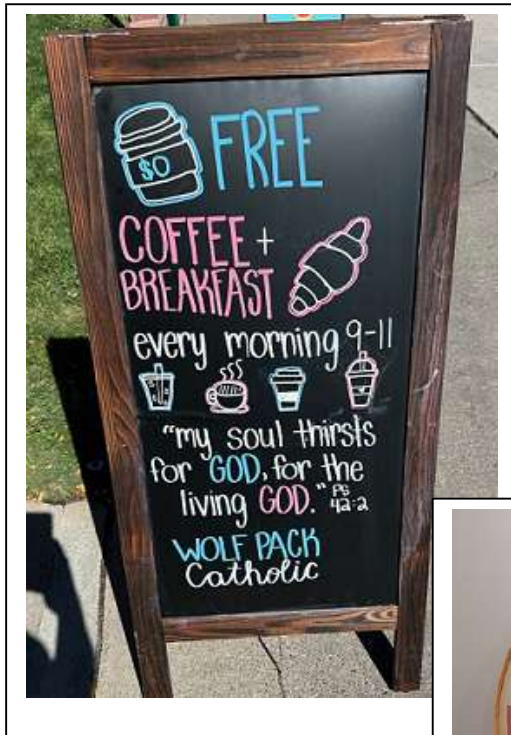 $0 FREE
COFFEE +
BREAKFAST
every morning 9-11
"my soul thirsts
for GOD, for the
living GOD." PS
42:2
WOLF PACK
Catholic